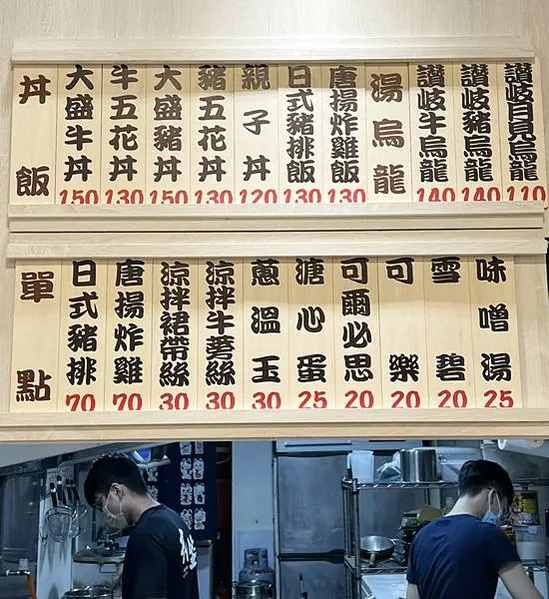 丼飯
大盛牛丼
150
牛五花丼
130
大盛豬丼
150
豬五花丼
130
親子丼
120
日式豬排飯
130
唐揚炸雞飯
130
湯烏龍
讚岐牛烏龍
140
讚岐豬烏龍
140
讚岐月見烏龍
110
單點
日式豬排
70
唐揚炸雞
70
涼拌裙帶絲
30
涼拌牛蒡絲
30
蔥溫玉
30
溏心蛋
25
可爾必思
20
可樂
20
雪碧
20
味噌湯
25